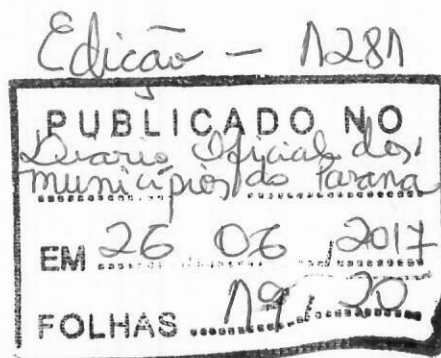 Edição - 1281
PUBLICADO NO
Diario Oficial dos
municípios do Paraná
EM 26 06 / 2017
FOLHAS 19 / 20